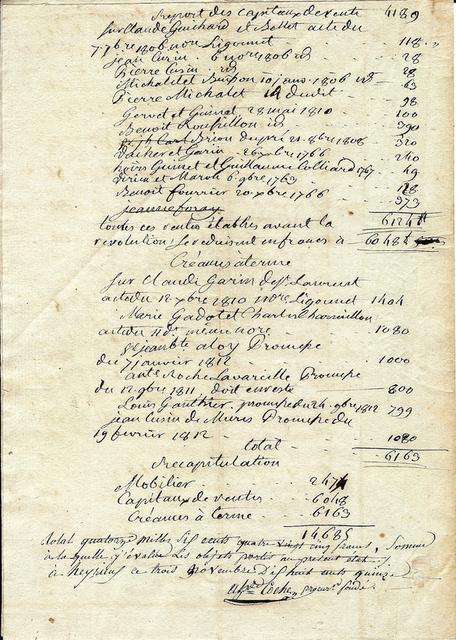 Report des capitaux de rente 4189
sur Claude Guichard et Bellet acte du
7. 7bre 1806 nore Ligonnet 118
jean Cusin 6 nore 1806 id 28
Pierre Cusin id 28
Michalet et Buisson 10 janv. 1806 id 63
Pierre Michalet dudit
Gervet et Guinet 28 mai 1810 98
Benoit Roussillon id 100
dupré 21. 8bre 1808 390
Vacher et Garin 26 xbre 1766 320
noirs Guinet et Guillaume Colliard 1767 240
et Maron 6 9bre 1763 49
Benoit fourrier 20 xbre 1766 128
jeanne 373
6124
toutes ces rentes établies avant la
revolution. Se reduisent en francs à 6048
Créances a terme
Sur Claude Garin de St Laurent
acte du 12 xbre 1810 nore Ligonnet 1404
Marie Gadot et Charles
acte du 11 do. meme nore 1080
jean bte aloy Promesse
du 71 anvier 1812 1000
ant. Roche Lavareille Promesse
du 12. 9bre 1811. doit en reste 800
Louis Gauthier. promesse du 24. 9bre 1812 799
jean Cusin de Mures Promesse du
19 fevrier 1812 1080
total 6163
Recapitulation
Mobilier 247
Capitaux de rentes 6048
Créances à terme 6163
14685
total quatorze milles six cents quatre vingt cinq francs, Somme
à la quelle j'évalue Les objets portés au présent état.
à heyrieu ce trois novembre dix huit cent quinze
fondé.